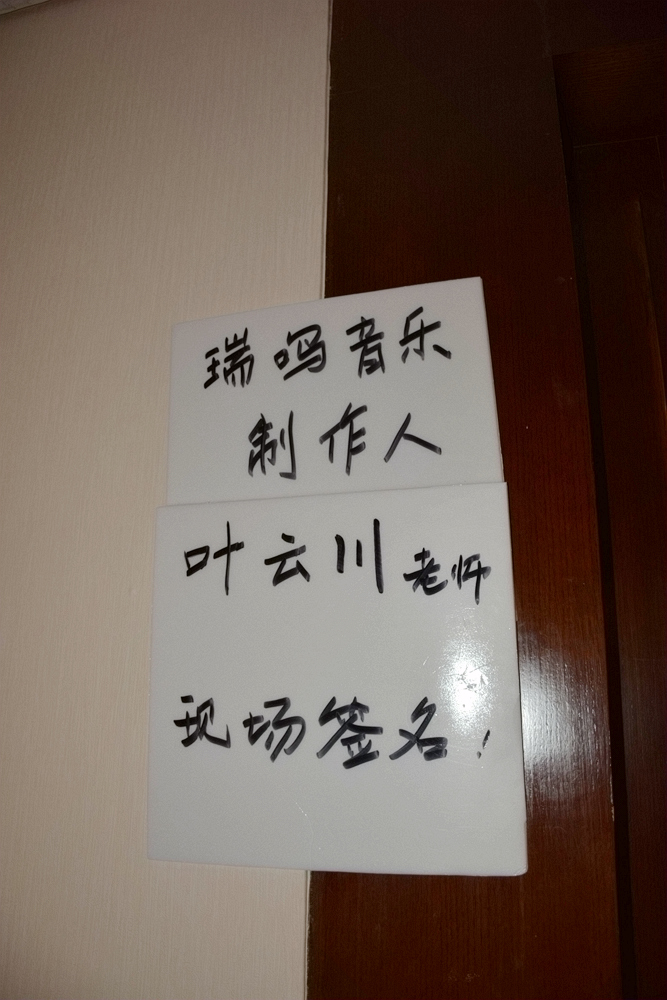 瑞鸣音乐
制作人
叶云川老师
现场签名！